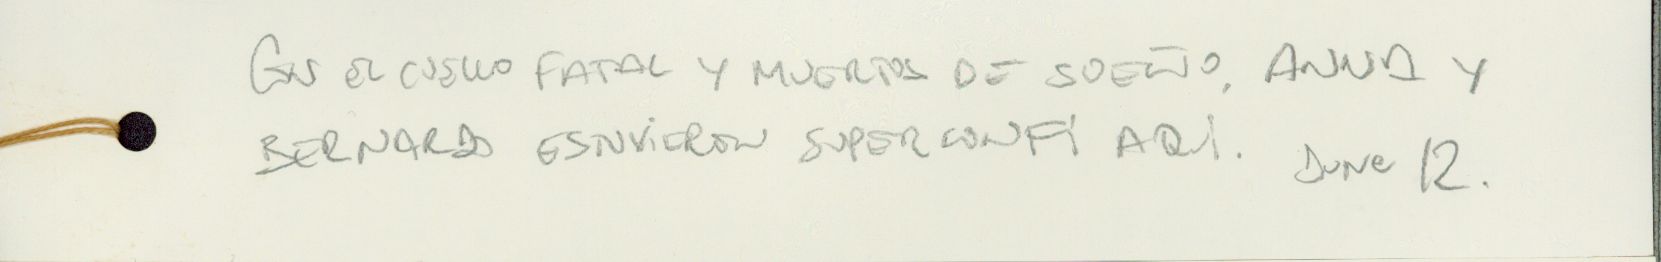 CON EL CUELLO FATAL Y MUERTOS DE SUEÑO, ANNA Y
BERNARDO ESTUVIERON SUPERCONFI AQUÍ. June 12.